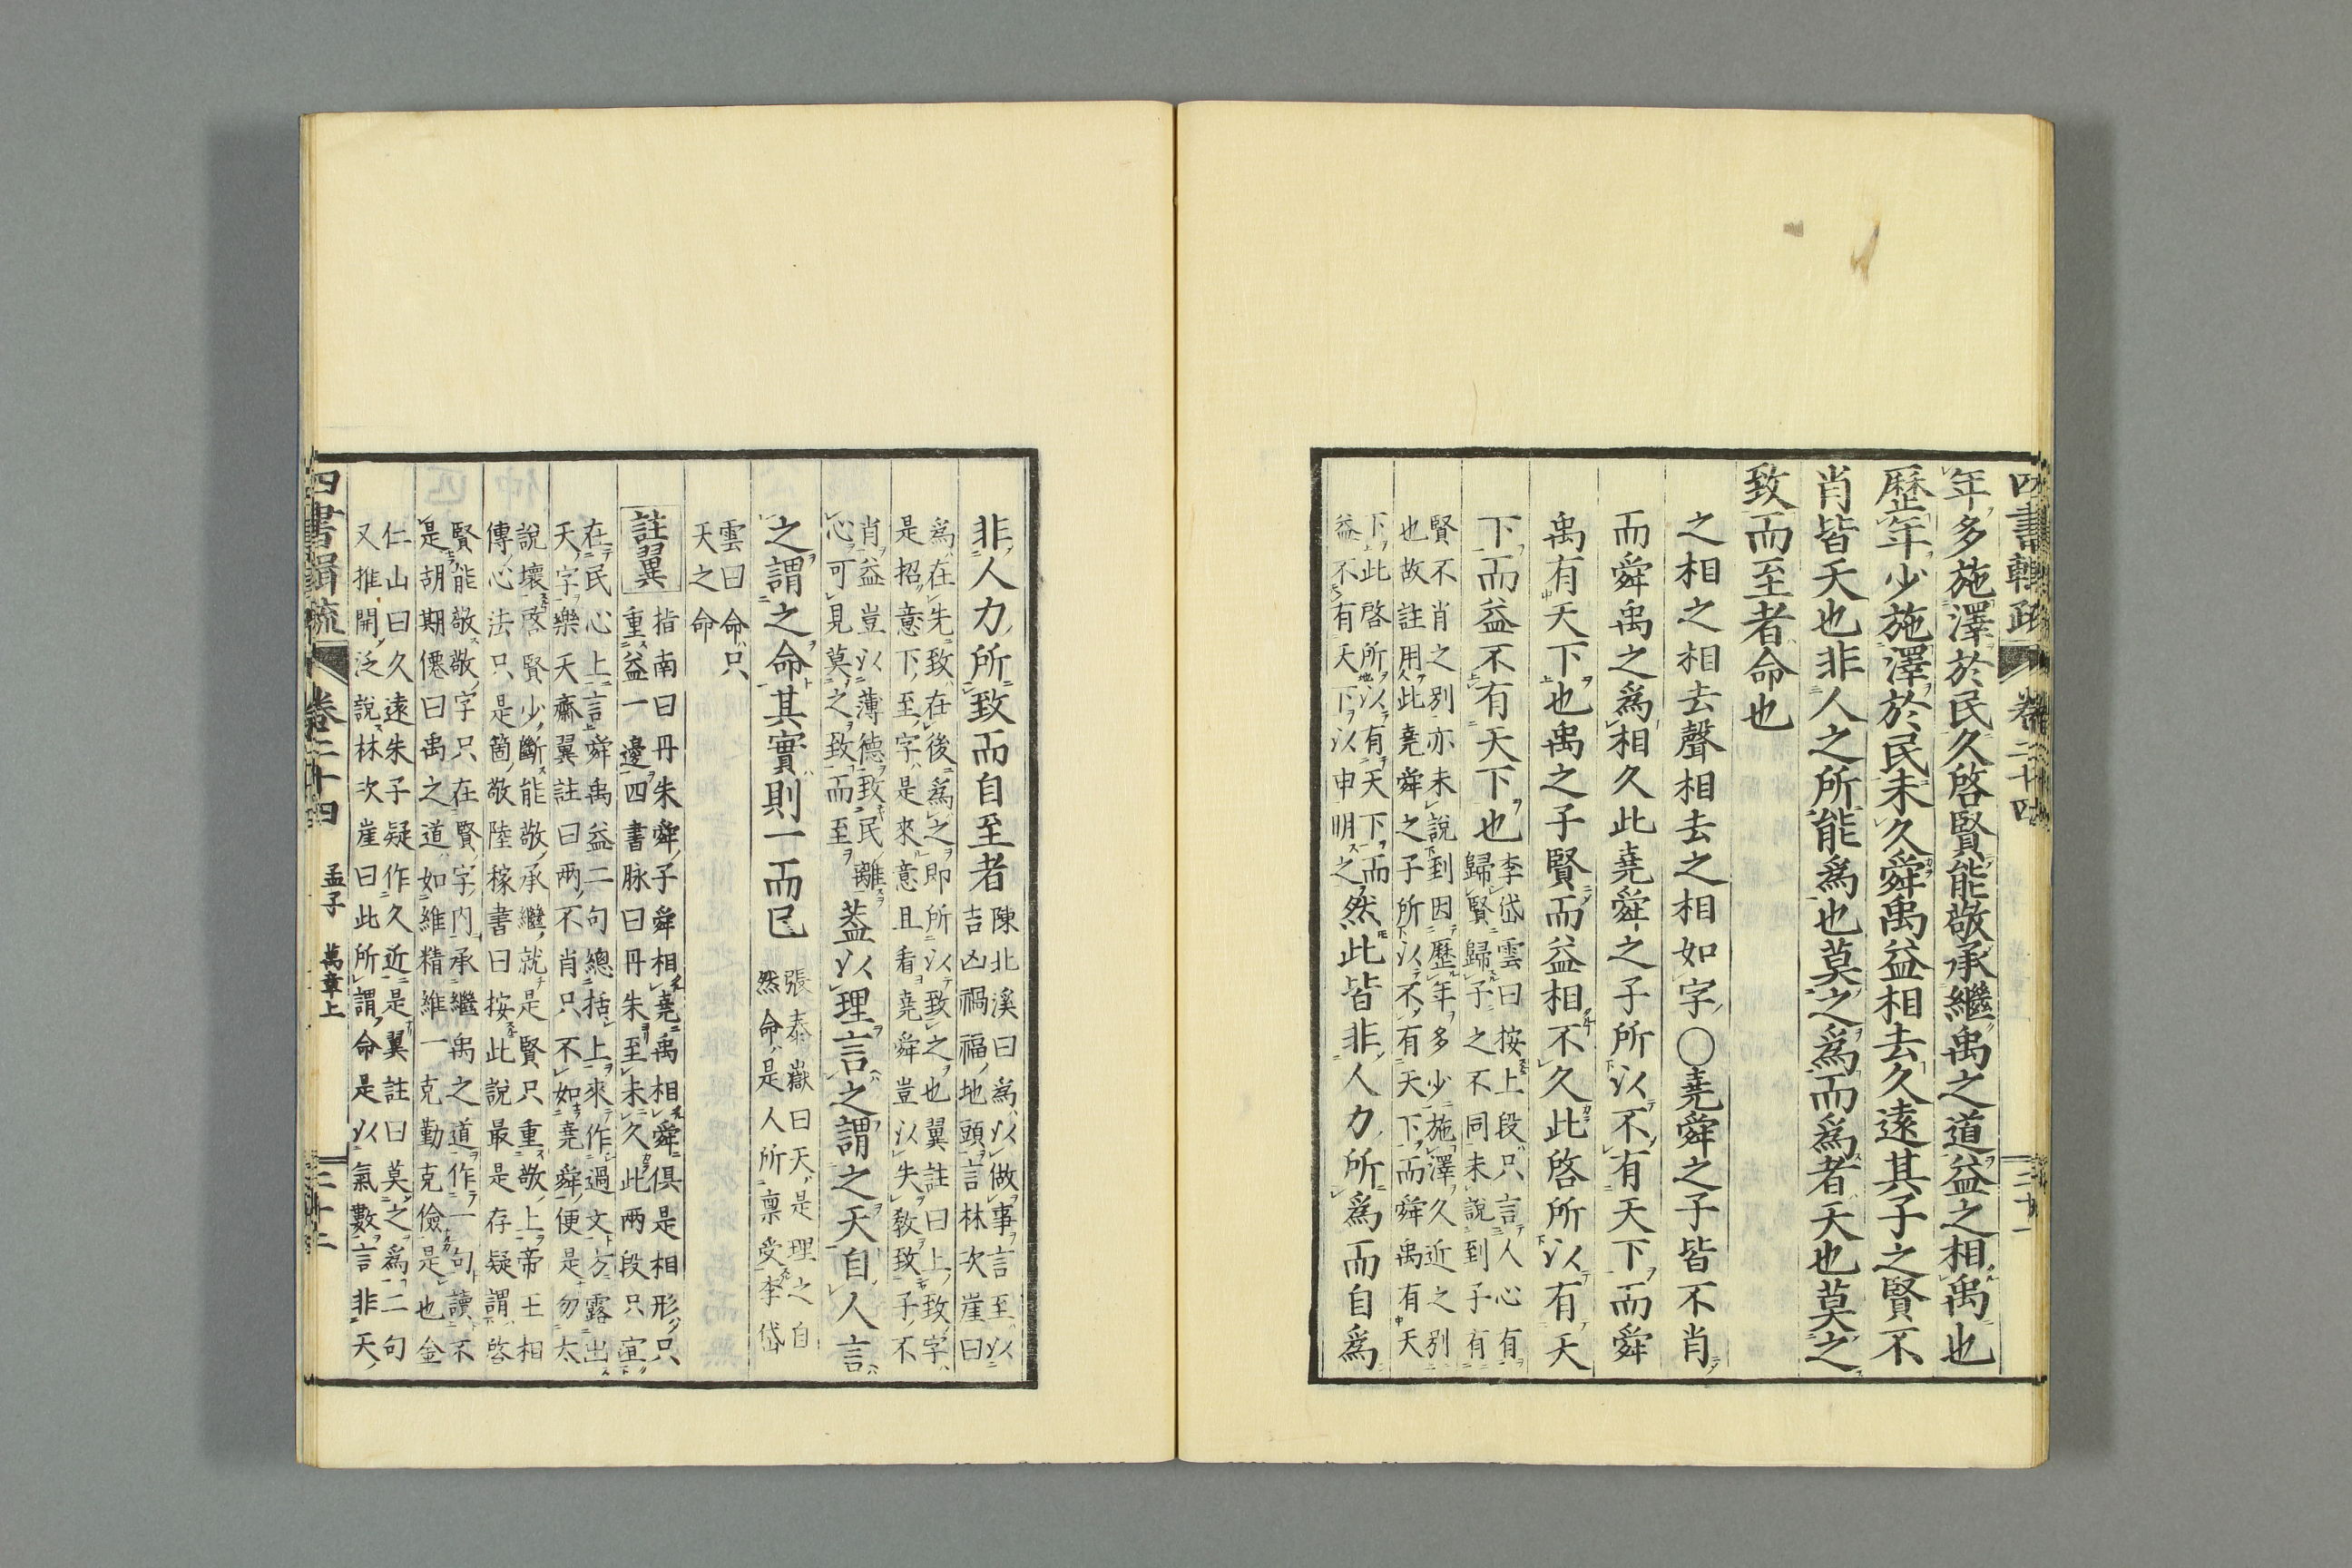 四書輯疏 卷二十四 二十一
年多施澤於民久啓賢能敬承繼禹之道益之相禹也
歷年少施澤於民未久舜禹益相去久遠其子之賢不
肖皆天也非人之所能爲也莫之爲而爲者天也莫之
致而至者命也
之相之相去聲相去之相如字○堯舜之子皆不肖
而舜禹之爲相久此堯舜之子所以不有天下而舜
禹有天下也禹之子賢而益相不久此啓所以有天
下而益不有天下也
李岱雲曰按上段只言人心有
歸賢歸子之不同未說到子有
賢不肖之別亦未說到因歷年多少施澤久近之別
也故註用此堯舜之子所以不有天下而舜禹有天
下此啓所以有天下而
益不有天下以申明之
然此皆非人力所爲而自爲
非人力所致而自至者
陳北溪曰爲以做事言至以
吉凶禍福地頭言林次崖曰
爲在先致在後爲之即所以致之也翼註曰上致字
是招意下至字是來意且看堯舜豈以失敎致子不
肖益豈以薄德致民離
心可見莫之致而至
蓋以理言之謂之天自人言
之謂之命其實則一而已
張泰嶽曰天是理之自
然命是人所禀受李岱
雲曰命只
天之命
註翼
指南曰丹朱舜子舜相堯禹相舜俱是相形只
重益一邊四書脉曰丹朱至未久此兩段只宜
在民心上言舜禹益二句總括上來作過文方露出
天字樂天齋翼註曰兩不肖只不如堯舜便是勿太
說壞啓賢少斷能敬承繼就是賢只重敬上帝王相
傳心法只是箇敬陸稼書曰按此說最是存疑謂啓
賢能敬敬字只在賢字內承繼禹之道作一句讀不
是胡期僊曰禹之道如維精維一克勤克儉是也金
仁山曰久遠朱子疑作久近是翼註曰莫之爲二句
又推開泛說林次崖曰此所謂命是以氣數言非天
四書輯疏 卷二十四 孟子 萬章上 二十二